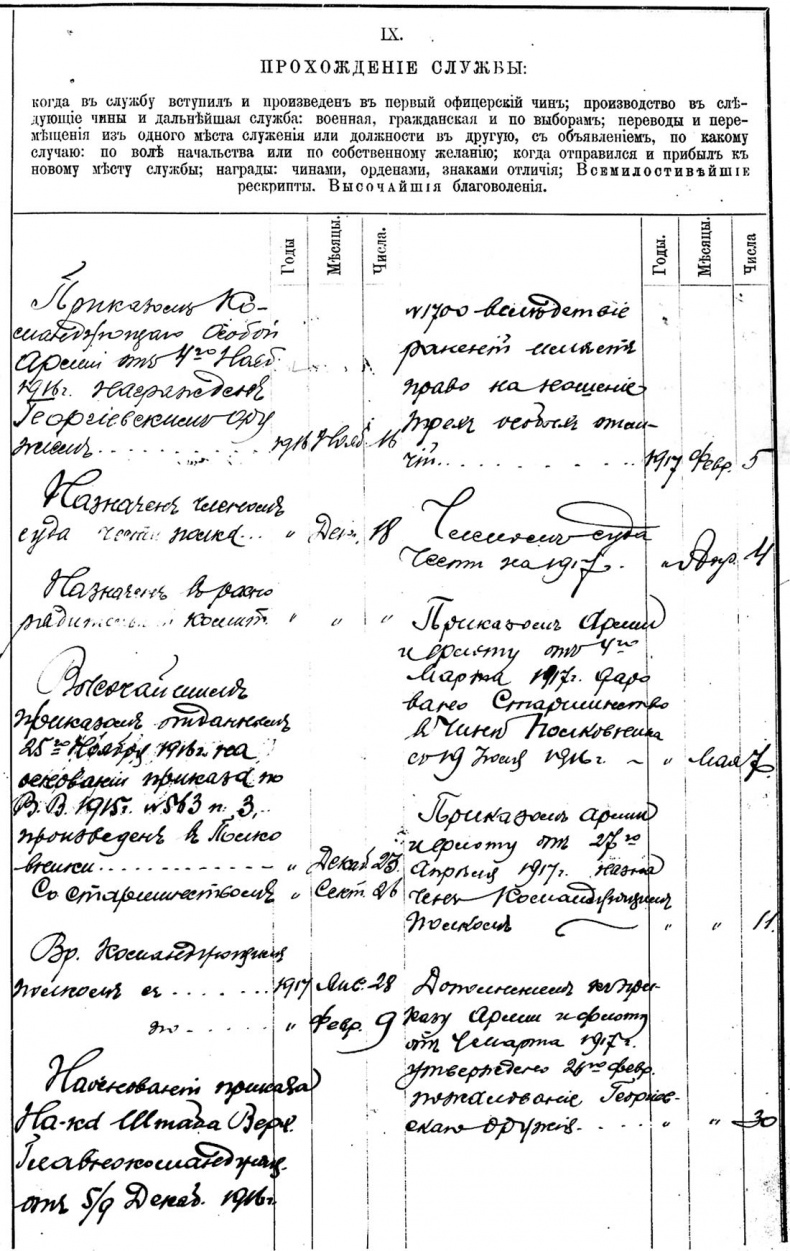 IX.
ПРОХОЖДЕНІЕ СЛУЖБЫ:
когда въ службу вступилъ и произведенъ въ первый офицерскій чинъ; производство въ слѣ-
дующіе чины и дальнѣйшая служба: военная, гражданская и по выборамъ; переводы и пере-
мѣщенія изъ одного мѣста служенія или должности въ другую, съ объявленіемъ, по какому
случаю: по волѣ начальства или по собственному желанію; когда отправился и прибылъ къ
новому мѣсту службы; награды: чинами, орденами, знаками отличія; Всемилостивѣйшіе
рескрипты. Высочайшія благоволенія.
Годы Мѣсяцы. Числа.
Приказомъ Ко-
мандующаго Особой
Арміи отъ 4го Нояб.
1916г. награжденъ
Георгіевскимъ ору
жіемъ 1916 Нояб. 16
Назначенъ членомъ
суда чести полка " Дек. 18
Назначенъ в распо
рядительный комит. " " "
Высочайшимъ
приказомъ отданнымъ
25го Ноября 1916г. на
основаніи приказа по
В.В. 1915г. № 563 п. 3,
произведенъ в Полко
вники " Декаб. 23.
Со старшинствомъ " Сент. 26
Вр. Командующимъ
полкомъ съ 1917 Янв. 28
по " Февр. 9
На основаніи приказа
На-ка Штаба Верх.
Главнокомандующ.
отъ 5/9 Декаб. 1916г.
Годы. Мѣсяцы. Числа
№ 1700 вслѣдствіе
раненій имѣетъ
право на ношеніе
трехъ особыхъ отли-
чій 1917 Февр. 5
Членомъ суда
Чести на 1917г. " Апр. 4
Приказомъ Арміи
и флоту отъ 4го
Марта 1917г. даро
вано Старшинство
в Чинѣ Полковника
со 19 Іюля 1916г. " Мая 7
Приказомъ Арміи
и флоту отъ 27го
Апрѣля 1917г. назна
ченъ Командующимъ
Полкомъ " " 11.
Дополненіемъ къ при-
казу Арміи и флоту
отъ 4 марта 1917г.
утверждено 28го февр.
пожалованіе Георгіев-
скаго оружія " " 30